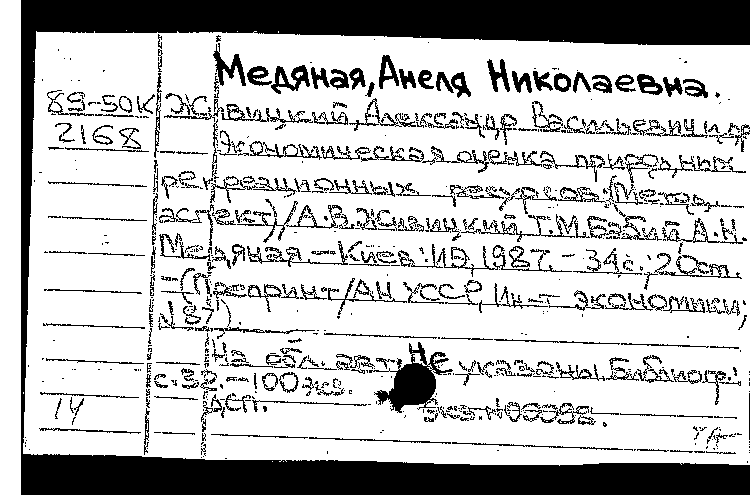 Медяная, Анеля Николаевна.
89-50К Живицкий, Александр Васильевич и др
2168 Экономическая оценка природных
рекреационных ресурсов: (Метод.
аспект) / А.В. Живицкий, Т.М. Бабий, А.Н.
Медяная. - Киев: ИЭ, 1987. - 34с.; 20см.
- (Препринт / АН УССР, Ин-т экономики,
N 87).
На обл. авт. не указаны. Библиогр.:
с. 32. - 100 экз.
14 ДСП. Экз. N